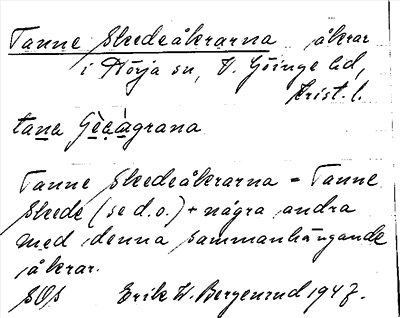 Tanne Skedeåkrarna åkrar
i Nörja sn, V. Göinge hd,
Krist. l.
tana
Tanne Skedeåkrarna = Tanne
Skede (se d.o.) + några andra
med denna sammanhängande
åkrar.
Erik W. Bergenrud 1947.